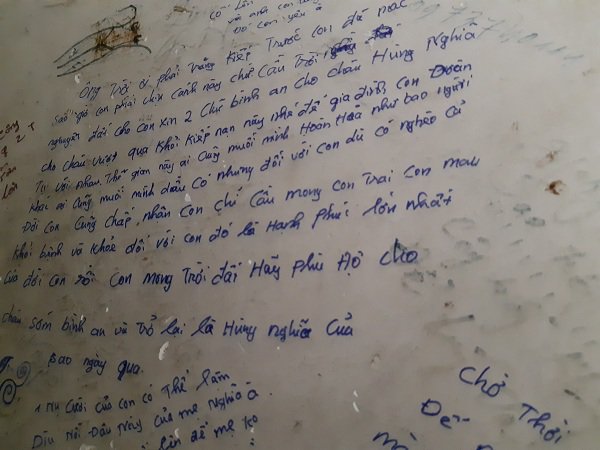 Cố Lên
và anh con
Đó con yêu ạ
Ông Trời ơi phải trăng Kiếp Trước con đã
Sao giờ con phải chịu cảnh này chứ Cầu Trời
nguyện đời cho con xin 2 Chữ bình an cho cháu Hùng Nghĩa
cho cháu vượt qua khỏi kiếp nạn này nhé để gia đình con Đoàn
Tụ với nhau. Thế gian này ai Cũng muối mình Hoàn Hoả như bao người
Khác ai Cũng muối mình đầu Có nhưng đối với con dù có nghèo Cả
Đời con Cũng chấp nhân con chỉ Cầu mong con Trai con mau
Khỏi bệnh và khỏe đối với con đó là Hạnh phúc lớn nhất
của đời con rồi con mong Trời đất Hãy phù Hộ cho
cháu sớm bình an và Trở lại là Hùng nghĩa Của
bao ngày qua.
1 Nụ Cười của con có Thể làm
Dịu Nỗi Đâu Nóng của mẹ Nghĩa à
lên để mẹ ko
Chờ Thời
Đến